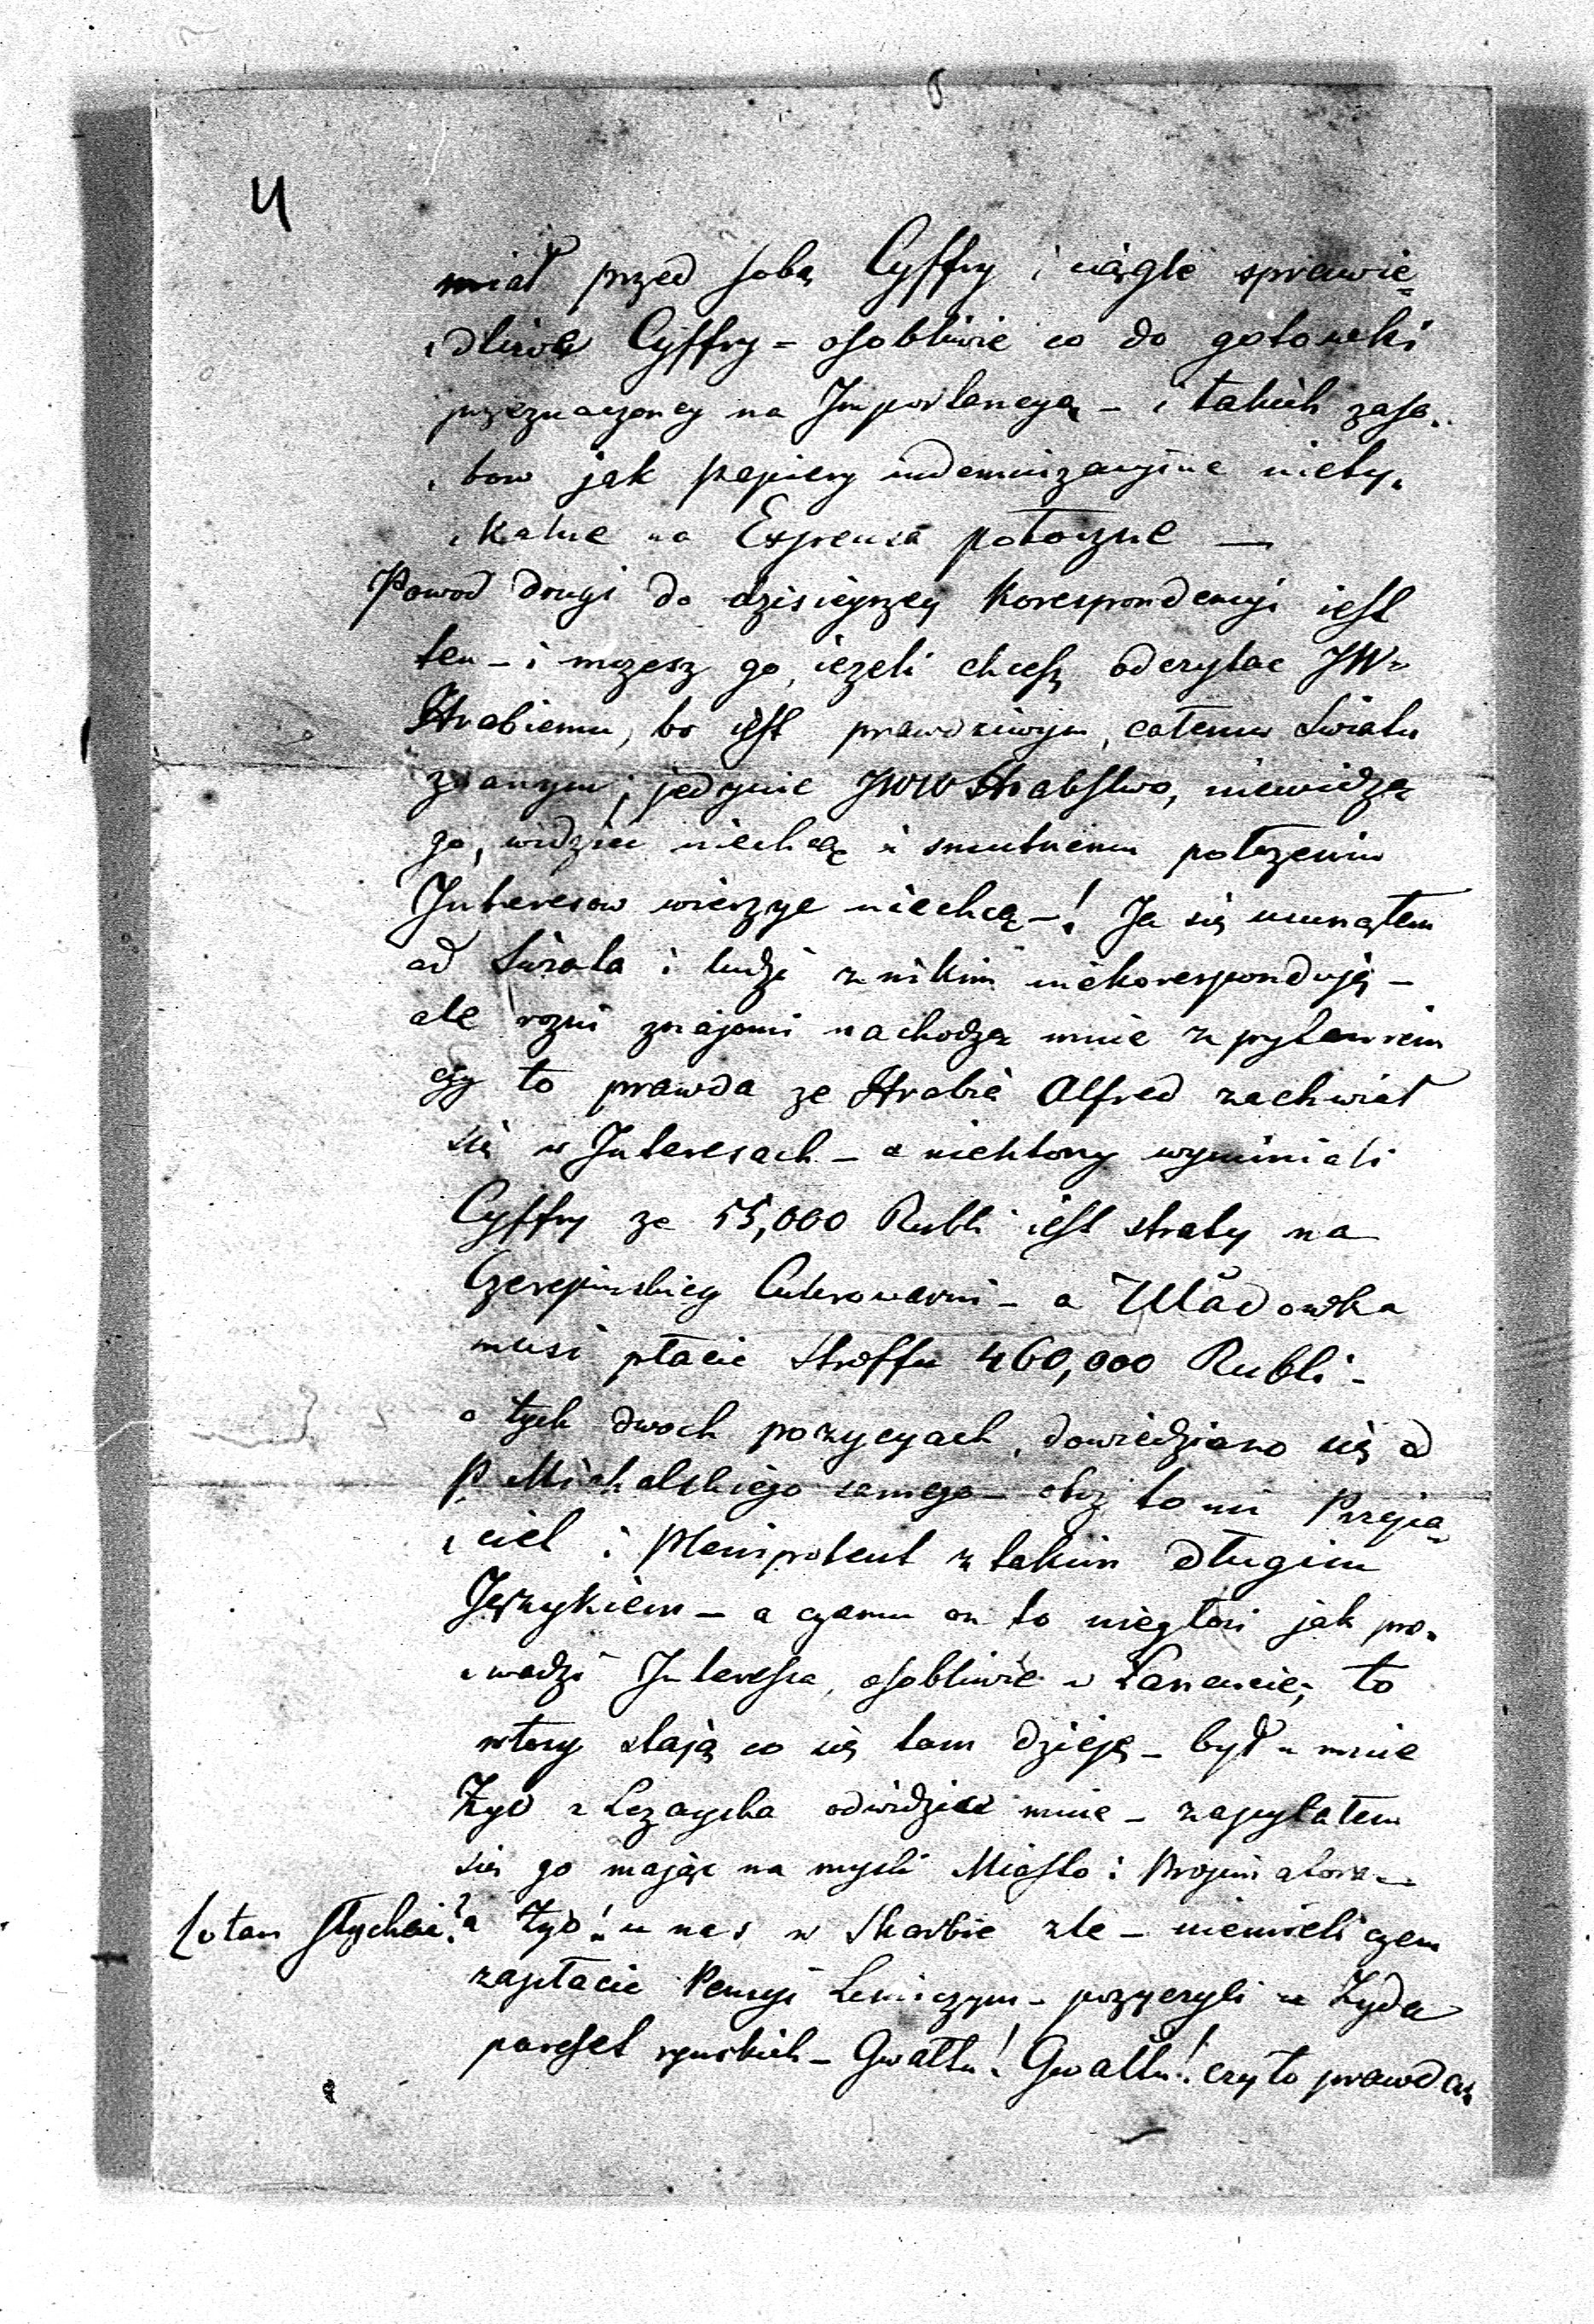 4
miał przed sobą Cyffry i ciągle sprawie=
dliwe Cyffry - osobliwie co do gotowki
przeznaczoney na Importancyą - i takich zaso„
„bow jak papiery indemnizacyine niety„
„kalne na Expensa potoczne —
Powod drugi do dzisieyszey Korespondencyi iest
ten - i mozesz go, iezeli chcesz odczytac JW
Hrabiemu, bo iest prawdziwym, całemu Swiatu
znanym; jedynie JWW Hrabstwo, niewidzą
go, widziec niechcą i smutnemu połozeniu
Interesow wierzyc niechcą -! Ja się usunąłem
od Swiata i ludzi z nikim niekoresponduję -
ale rozni znajomi nachodzą mnie z pytaniem
czy to prawda ze Hrabia Alfred zachwiał
się w Interesach - a niektorzy wyminiali
Cyffry ze 55,000 Rubli iest straty na
Czerepinskiey Cukrowarni - a Uładowka
musi płacic Stroffu 460,000 Rubli -
o tych dwoch pozycyach, dowiedziano się od
P. Michalskiego samego - otoz to mi Przyia„
„ciel i Plenipotent z takim długim
Językiem - a czemu on to niegłosi jak pro„
„wadzi Interessa, osobliwie w Łancucie, to
włosy stają co się tam dzieję - był u mnie
Zyd z Lezayska odwidziec mnie - zapytałem
się go mając na mysli Miasto i Propinatora -
Co tam słychac? a Zyd! u nas w Skarbie zle - niemieli czem
zapłacic Pensyi Lesniczym - pozyczyli u Zyda
pareset rynskich - Gwałtu! Gwałtu! czy to prawda